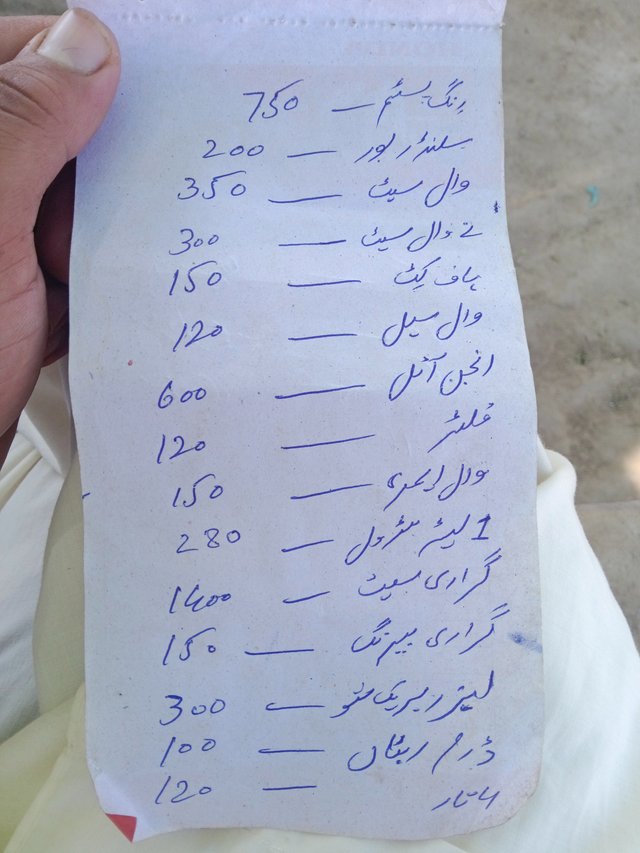 رنگ پسٹم — 750
سلنڈر بور — 200
وال سیٹ — 350
نے وال سیٹ — 300
ہاف کِٹ — 150
وال سیل — 120
انجن آئل — 600
فلٹر — 120
وال ایمری — 150
1 لیٹر پٹرول — 280
گراری سیٹ — 1400
گراری بیرنگ — 150
لیدر بریک شو — 300
ڈرم ربٹاں — 100
تار — 120